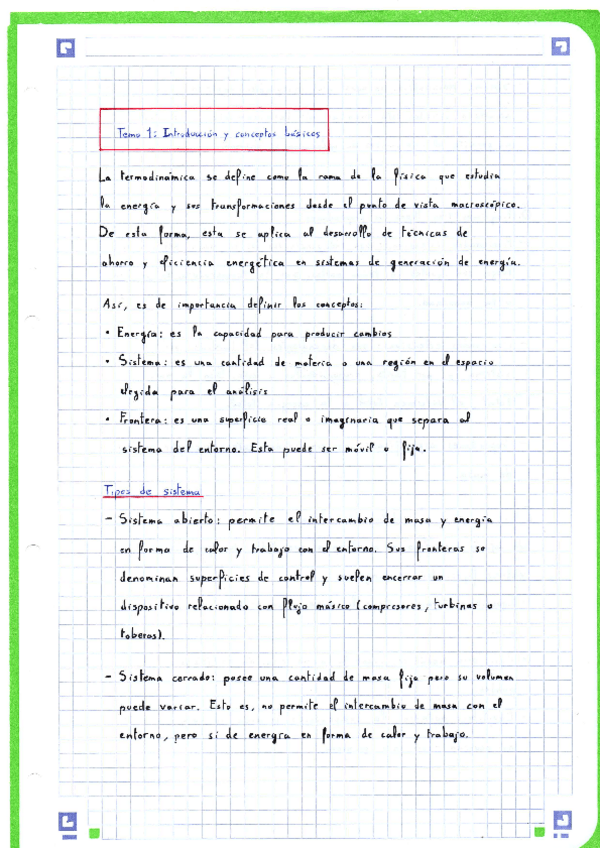 Tema 1: Introducción y conceptos básicos
La termodinámica se define como la rama de la física que estudia
la energía y sus transformaciones desde el punto de vista macroscópico.
De esta forma, esta se aplica al desarrollo de técnicas de
ahorro y eficiencia energética en sistemas de generación de energía.
Así, es de importancia definir los conceptos:
• Energía: es la capacidad para producir cambios
• Sistema: es una cantidad de materia o una región en el espacio
elegida para el análisis
• Frontera: es una superficie real o imaginaria que separa al
sistema del entorno. Esta puede ser móvil o fija.
Tipos de sistema
- Sistema abierto: permite el intercambio de masa y energía
en forma de calor y trabajo con el entorno. Sus fronteras se
denominan superficies de control y suelen encerrar un
dispositivo relacionado con flujo másico (compresores, turbinas o
toberas).
- Sistema cerrado: posee una cantidad de masa fija pero su volumen
puede variar. Esto es, no permite el intercambio de masa con el
entorno, pero si de energía en forma de calor y trabajo.